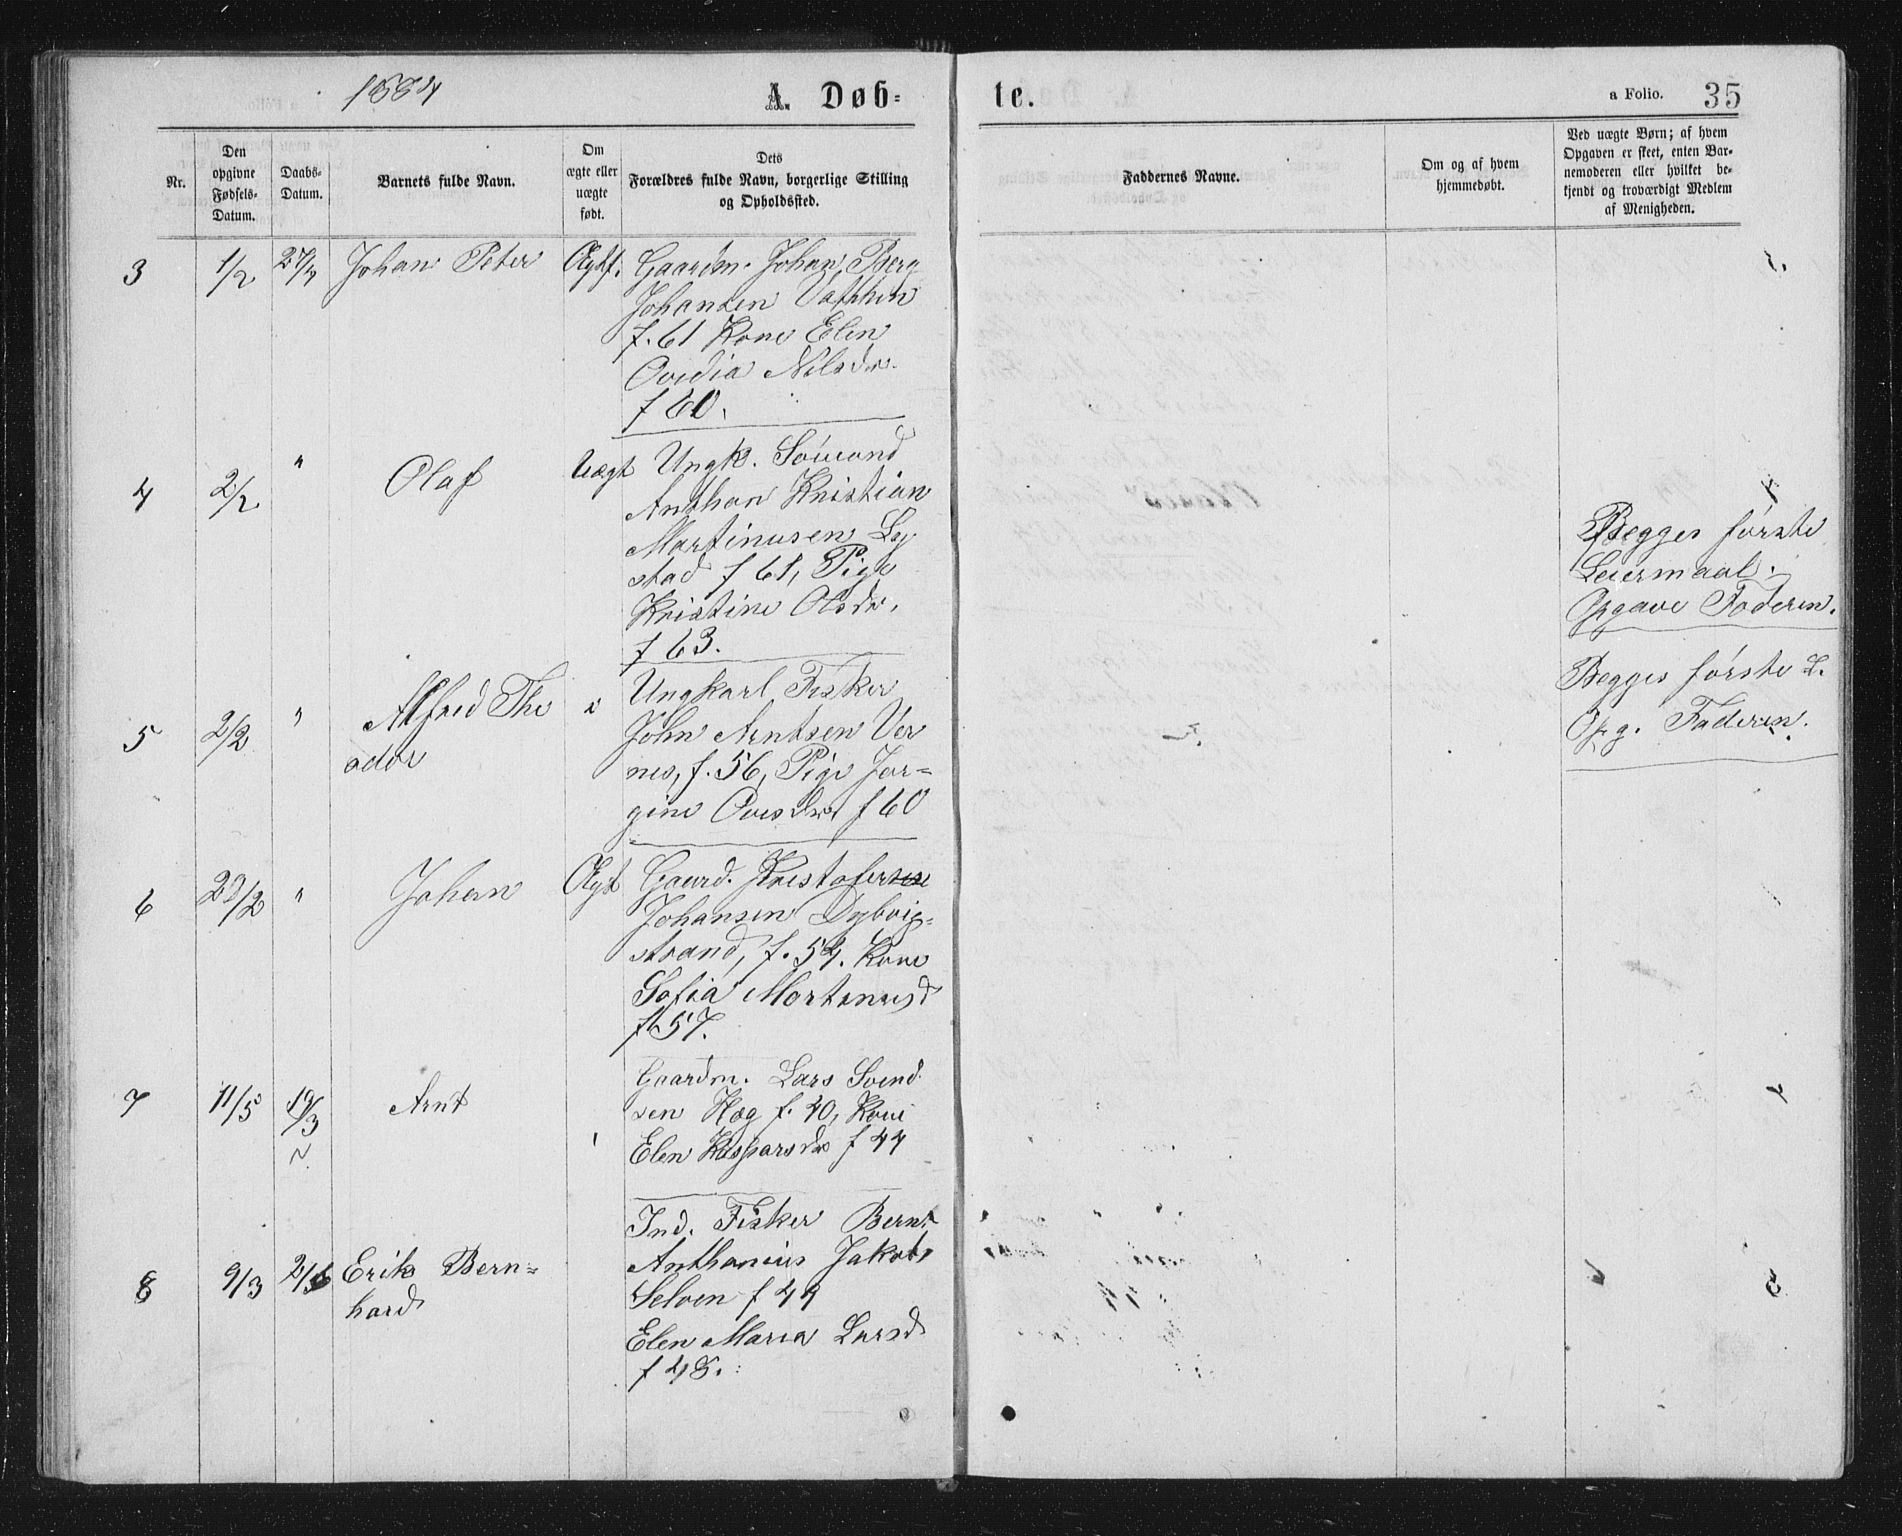 1884
A. Døb=
te.
a Folio. 35
Nr.
Den
opgivne
Fødsels-
Datum.
Daabs-
Datum.
Barnets fulde Navn.
Om
ægte eller
uægte
født.
Dets
Forældres fulde Navn, borgerlige Stilling
og Opholdssted.
Faddernes Navne.
Om og af hvem
hjemmedøbt.
Ved uægte Børn; af hvem
Opgaven er skeet, enten Bar-
nemoderen eller hvilket be-
kjendt og troværdigt Medlem
af Menigheden.
3 1/2 27/2 Johan Peter Ægtf. Gaardm. Johan Berg
Johansen
f. 61 Kone Elen
Ovidia Nilsdr.
f 60.
4 2/2 " Olaf Uægt Ungk. Sömand
Anthon Kristian
Martinusen Ley
stad f 61, Pige
Kristine Olsdr,
f 63.
Begges förste
Leiermaal.
Opgave Faderen.
5 2/2 " Alfred The
odor
Ungkarl Fisker
John Arntsen Ver
nes, f. 56, Pige Jør=
gine Ovesdr. f 60
Begges förste L.
Opg. Faderen.
6 /2 " Johan Ægt Gaard. Kristofer
Johansen Dybvig=
strand, f. 54. Kone
Sofia Mortensd
f 57.
7 11/5 19/3 Arnt
Gaardm. Lars Svend
sen Hæg f. 40, Kone
Elen Kasparsdr f 44
8 9/3 Erik Bern=
hard
Ind. Fisker Bernt
Anthonius Jakobs
Selven f 49
Elen Maria Larsd
f 48.